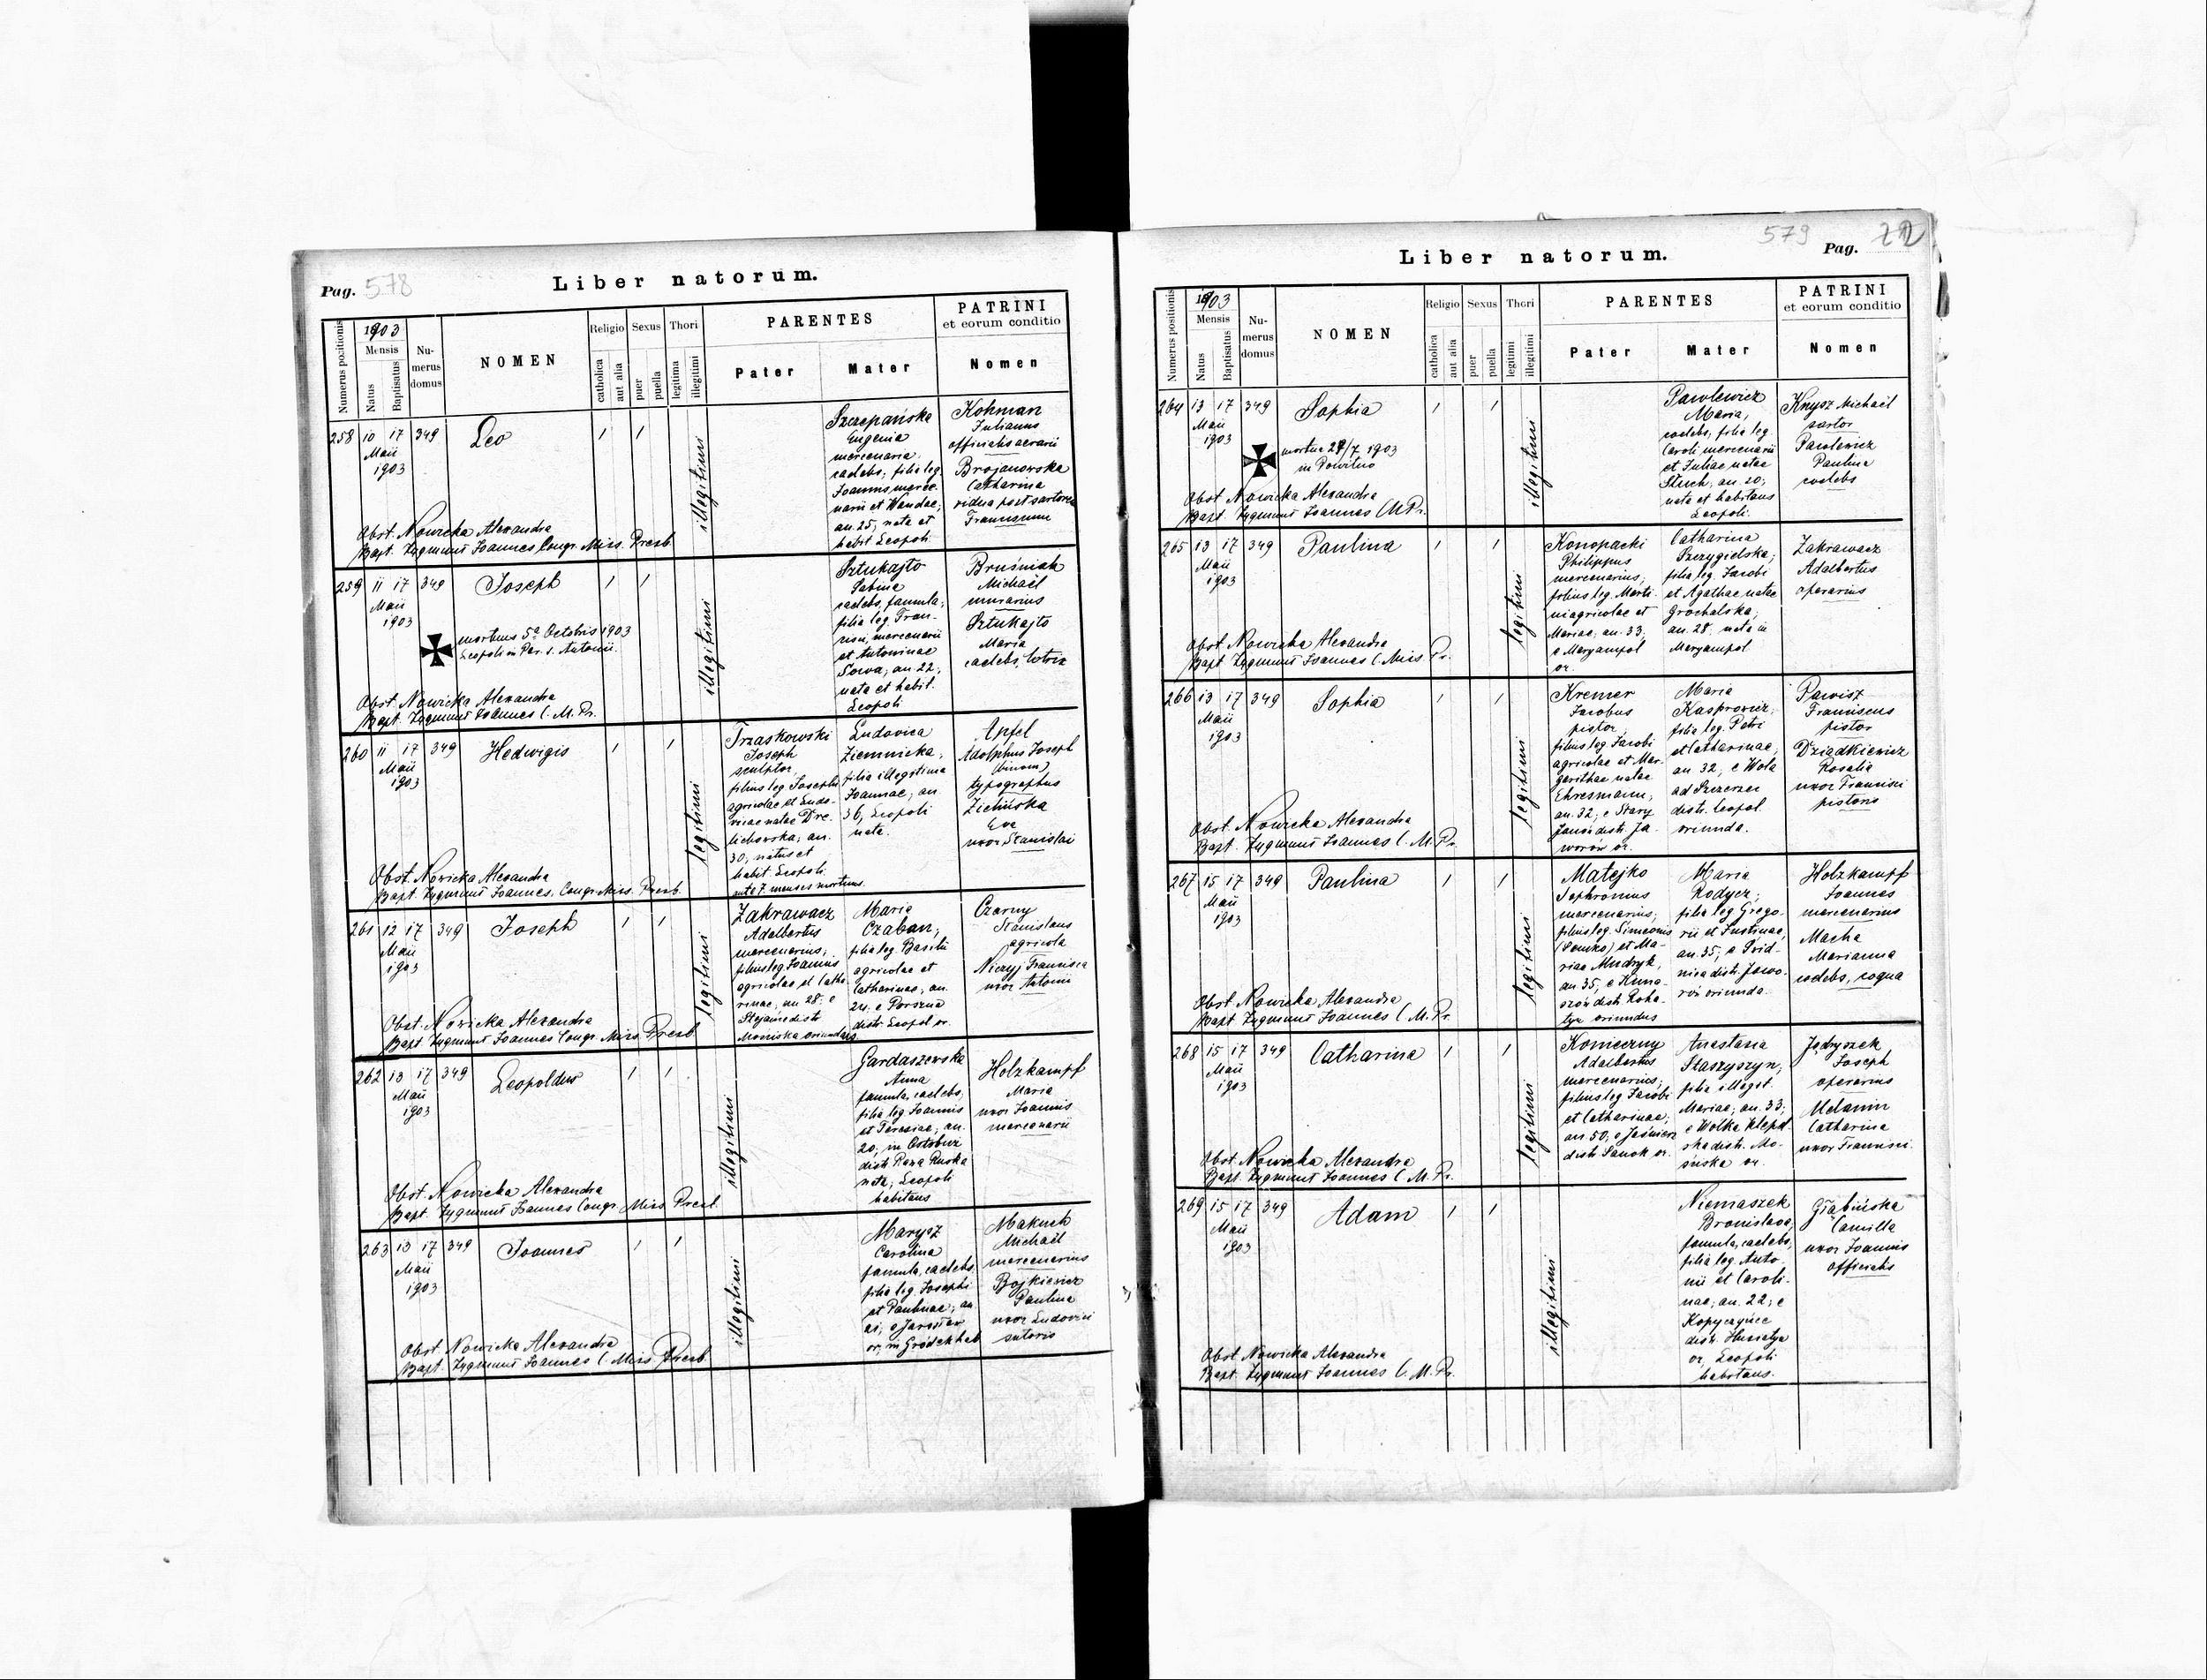 Pag. 578
Liber natorum.
Numerus positionis
1903
Mensis
Natus
Baptisatus
Nu-
merus
domus
NOMEN
Religio
catholica
aut alia
Sexus
puer
puella
Thori
legitima
illegtimi
PARENTES
Pater
Mater
PATRINI
et eorum conditio
Nomen
258 10 17 349 Leo 1 1
Maii
1903
illegitimi
Szczepańska
Eugenia
mercenaria
caelebs, filia leg.
Joannis merce-
narii et Wandae;
an 25; nata et
habit Leopoli.
Kohman
Julianus
officialis aerarii
Brojanowska
Catharina
vidua post sartorem
Franciscum
Obst. Nowicka Alexandra
Bapt. Zygmunt Joannes Congr. Miss. Presb.
259 11 17 349 Joseph 1 1
Maii
1903
mortuus 5a Octobris 1903
Leopoli in Par. s. Antonii.
illegitimi
Sztukajto
Sabina
caelebs, famula;
filia leg. Fran-
cisci, mercenarii
et Antoninae
Sowa; an. 22;
nata et habit.
Leopoli
Bruśniak
Michaël
murarius
Sztukajto
Maria
caelebs, lotrix
Obst. Nowicka Alexandra
Bapt. Zygmunt Joannes C. M. Pr.
260 11 17 349 Hedwigis 1 1
Maii
1903
legitimi
Trzaskowski
Joseph
sculptor
filius leg Josephi
agricolae et Ludo-
vicae natae Dre-
lichowska; an.
30; natus et
habit. Leopoli
ante 7 menses mortuus.
Ludovica
Ziemnicka,
filia illegitima
Joannae; an
36, Leopoli
nata.
Apfel
Adolphus Joseph
(binom)
typographus
Zielińska
Eva
uxor Stanislai
Obst. Nowicka Alexandra
Bapt. Zygmunt Joannes. Congr. Miss. Presb.
261 12 17 349 Joseph 1 1
Maii
1903
legitimi
Zakrawacz
Adalbertus
mercenarius;
filius leg Joannis
agricolae et Catha-
rinae; an 28; e
distr
Mościska oriundus
Maria
Czaban;
filia leg. Basilii
agricolae et
Catharinae; an.
24, e Porszna
distr. Leopol or.
Czarny
Stanislaus
agricola
Niczyj Francisca
uxor Antonii
Obst. Nowicka Alexandra
Bapt. Zygmunt Joannes Congr. Miss. Presb
262 13 17 349 Leopoldus 1 1
Maii
1903
illegitimi
Gardaszewska
Anna
famula, caelebs,
filia leg Joannis
et Teresiae; an.
20; in
distr Rawa Ruska
nata; Leopoli
habitans
Holzkampf
Maria
uxor Joannis
mercenarii
Obst. Nowicka Alexandra
Bapt. Zygmunt Joannes Congr. Miss. Presb.
263 13 17 349 Joannes 1 1
Maii
1903
illegitimi
Marysz
Carolina
famula, caelebs,
filia leg. Josephi
et Paulinae; an
21; e Jarosław
or; in Gródek hab
Makuch
Michaël
mercenarius
Bojkiewicz
Paulina
uxor Ludovici
sutoris
Obst. Nowicka Alexandra
Bapt. Zygmunt Joannes C. Miss. Presb.
579
Pag. 22
Liber natorum.
Numerus positionis
1903
Mensis
Natus
Baptisatus
Nu-
merus
domus
NOMEN
Religio
catholica
aut alia
Sexus
puer
puella
Thori
legitimi
illegitimi
PARENTES
Pater
Mater
PATRINI
et eorum conditio
Nomen
264 13 17 349 Sophia 1 1
Maii
1903
mortua 7 1903
in Powitno
illegitimi
Pawlewicz
Maria,
caelebs, filia leg
Caroli mercenarii
et Juliae natae
Stuch; an. 20;
nata et habitans
Leopoli.
Knysz Michaël
sartor
Pawlewicz
Paulina
caelebs
Obst Nowicka Alexandra
Bapt. Zygmunt Joannes C M Pr.
265 13 17 349 Paulina 1 1
Maii
1903
legitimi
Konopacki
Philippus
mercenarius;
filius leg. Marti-
ni agricolae et
Mariae; an. 33;
e Maryampol
or.
Catharina
Szczygielska;
filia leg. Jacobi
et Agathae natae
Grochalska;
an. 28; nata in
Maryampol
Zakrawacz
Adalbertus
operarius
Obst Nowicka Alexandra
Bapt. Zygmunt Joannes C. Miss Pr.
266 13 17 349 Sophia 1 1
Maii
1903
legitimi
Kremer
Jacobus
pistor,
filius leg Jacobi
agricolae et Mar-
garithae natae
Ehresmann;
an. 32; e Stary
Janów distr. Ja-
worów or.
Maria
Kasprowicz
filia leg. Petri
et Catharinae;
an 32; e Wola
ad
distr. Leopol
oriunda.
Pawisz
Franciscus
pistor
Dziadkiewicz
Rosalia
uxor Francisci
pistoris
Obst. Nowicka Alexandra
Bapt. Zygmunt Joannes C. M. Pr.
267 15 17 349 Paulina 1 1
Maii
1903
legitimi
Matejko
Sophronius
mercenarius;
filius leg. Simeonis
(Semko) et Ma-
riae Mudryk,
an. 35; e Kuna-
szów distr. Roha-
tyn oriundus
Maria
Rodycz;
filia leg Grego-
rii et Justinae;
an. 35; e Srid-
nica distr. Jawo-
rów oriunda.
Holzkampf
Joannes
mercenarius
Macha
Marianna
caelebs, coqua
Obst Nowicka Alexandra
Bapt Zygmunt Joannes C M. Pr.
268 15 17 349 Catharina 1 1
Maii
1903
legitimi
Konieczny
Adalbertus
mercenarius;
filius leg Jacobi
et Catharinae;
an. 50; e
distr Sanok or.
Anastasia
Staszyszyn;
filia illegit.
Mariae; an. 33;
e Wolka
distr. Mo-
ściska or.
Jędryszek
Joseph
operarius
Melanin
Catharina
uxor Francisci
Obst. Nowicka Alexandra
Bapt. Zygmunt Joannes C M. Pr.
269 15 17 349 Adam 1 1
Maii
1903
illegitimi
Niemaszek
Bronislava
famula, caelebs,
filia leg. Anto-
nii et Caroli-
nae; an. 22; e
Kopyczyńce
distr. Husiatyn
or, Leopoli
habitans.
Głąbińska
Camilla
uxor Joannis
officialis
Obst Nowicka Alexandra
Bapt. Zygmunt Joannes C. M. Pr.